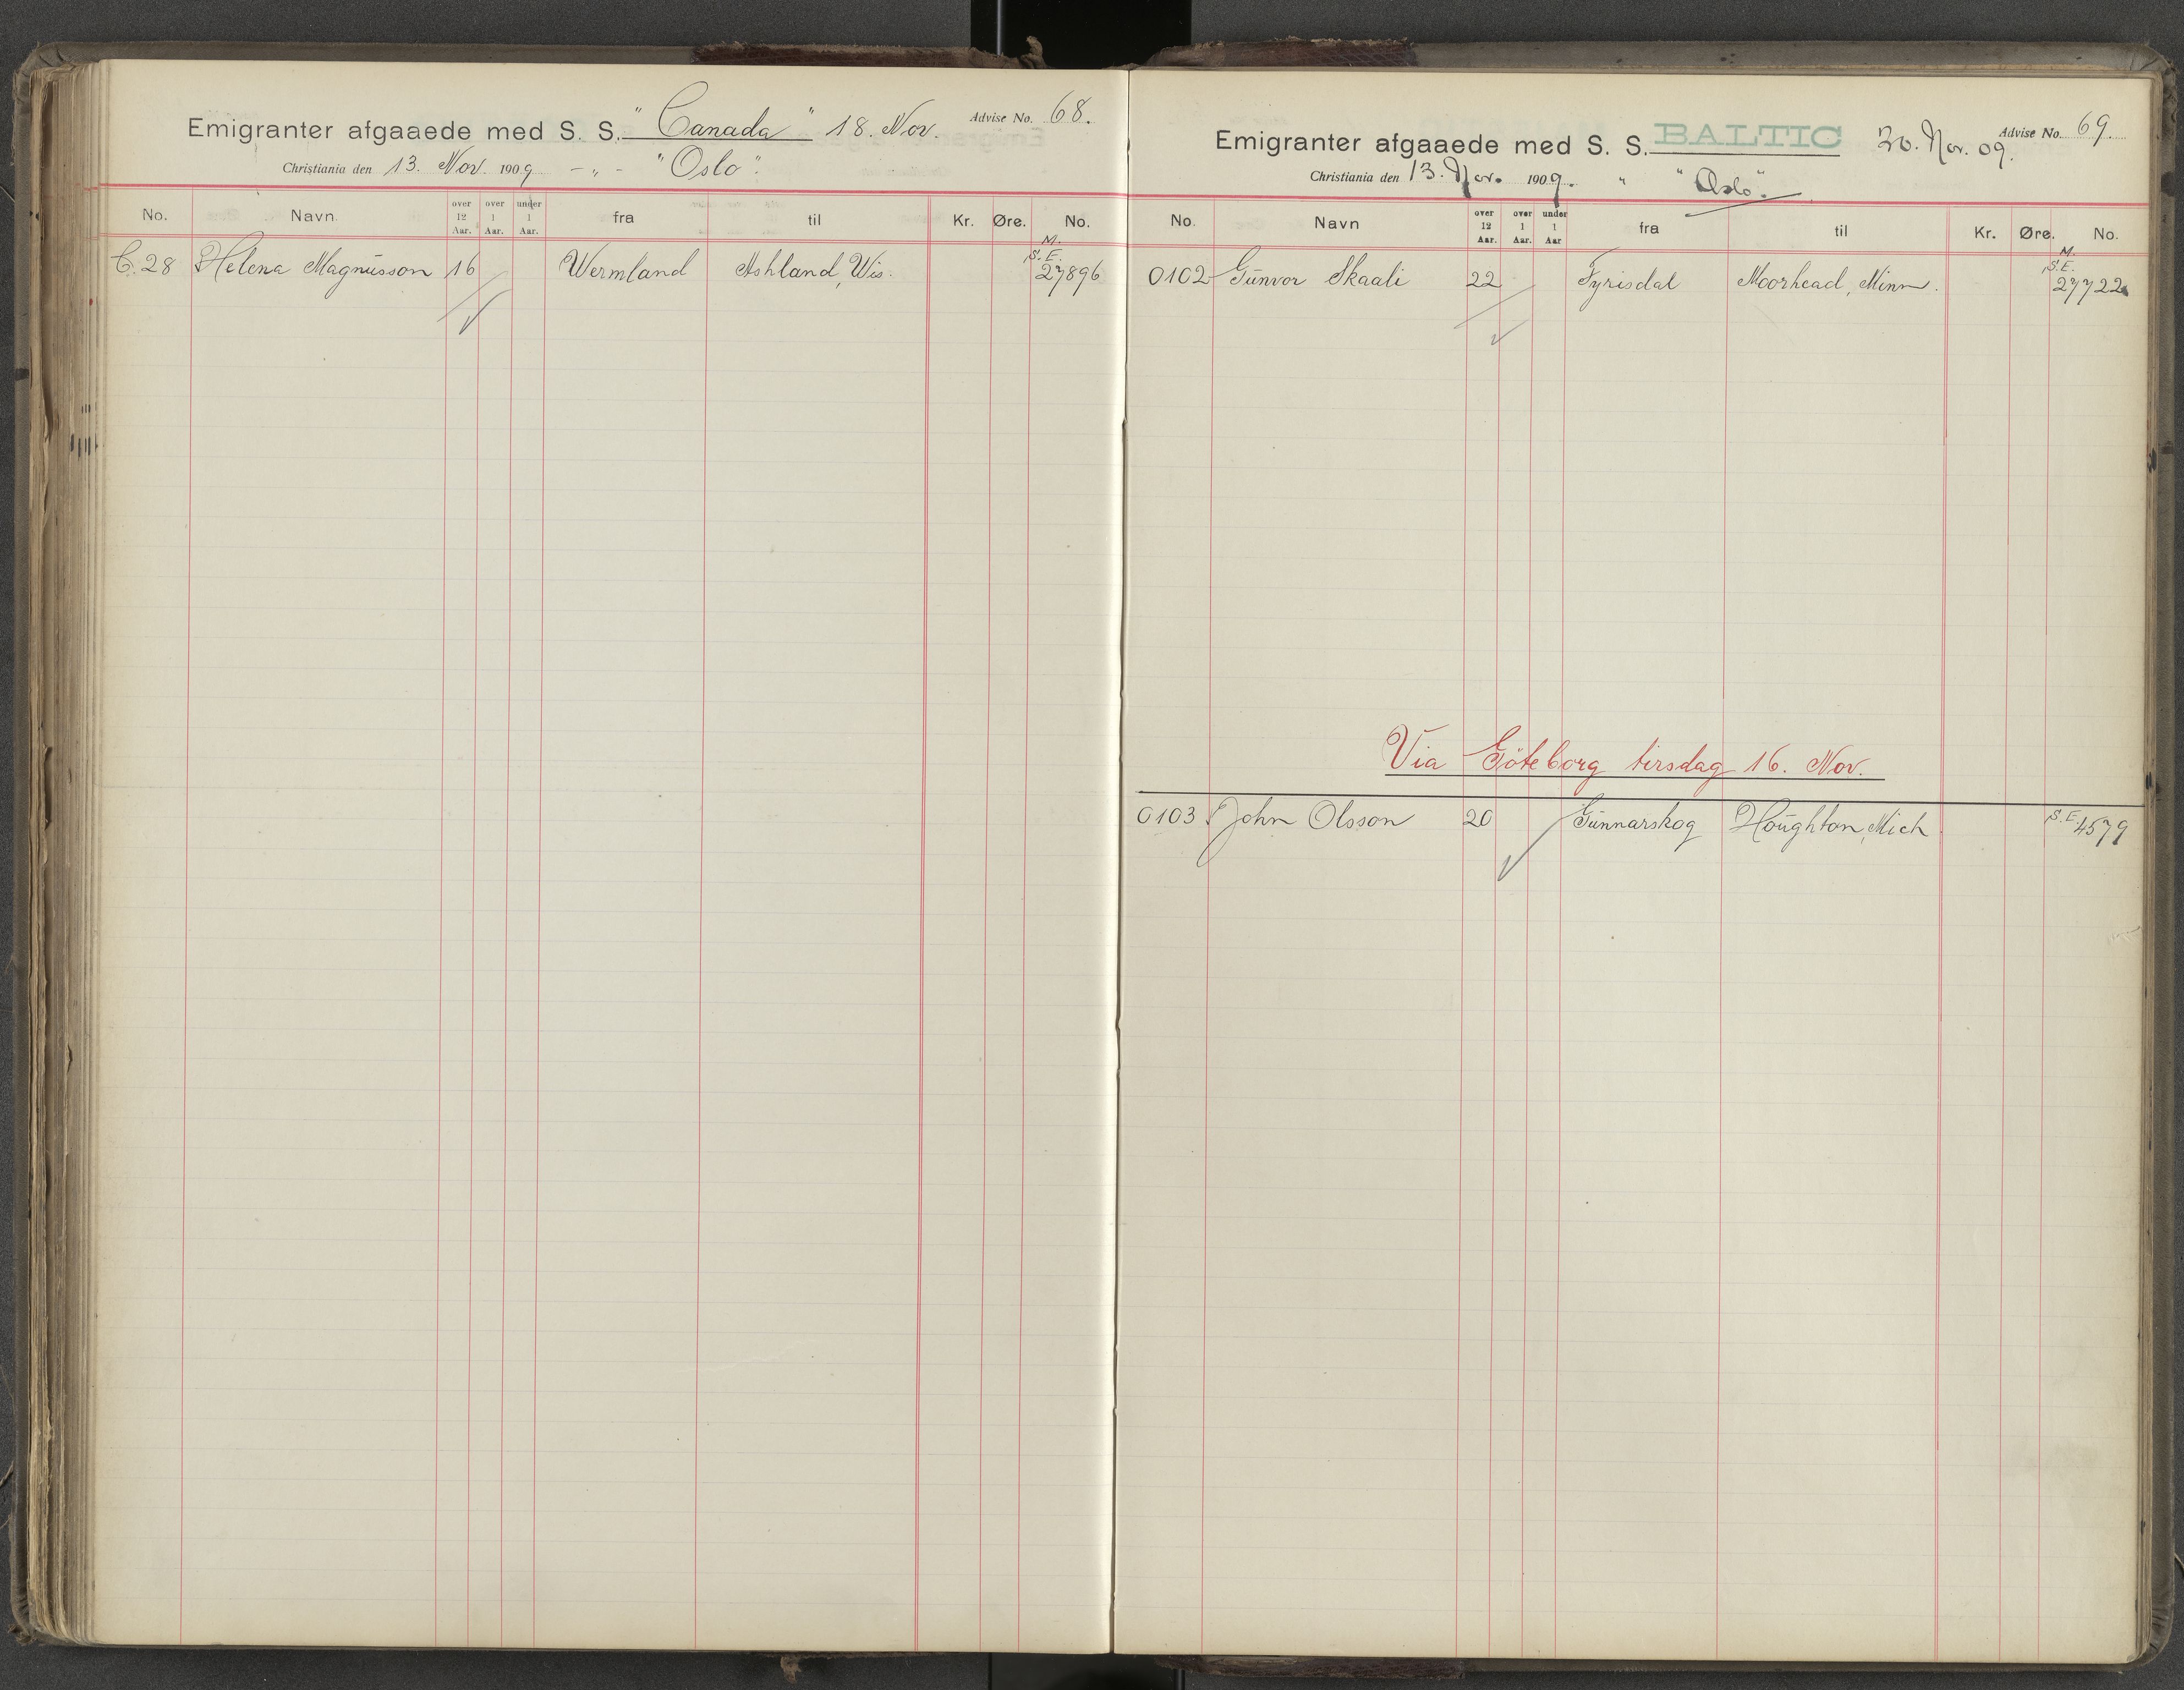 Emigranter afgaaede med S. S. "Canada" 18. Nov. Advise No. 68.
Christiania den 13. Nov. 1909 - „ - "Oslo".
No. Navn. over 12 Aar. over 1 Aar. under 1 Aar. fra til Kr. Øre. No.
C. 28 Helena Magnusson 16 Wermland Ashland, Wis. M. S.E. 27896
Emigranter afgaaede med S. S. BALTIC 20. Nov. 09. Advise No. 69.
Christiania den 13. Nov. 1909. " "Oslo".
No. Navn over 12 Aar. over 1 Aar. under 1 Aar fra til Kr. Øre. No.
0102 Gunvor Skaali 22 Fyrisdal Moorhead, Minn. M. S.E. 27722
Via Göteborg tirsdag 16. Nov.
0103 John Olsson 20 Gunnarskog Houghton, Mich S.E. 4579